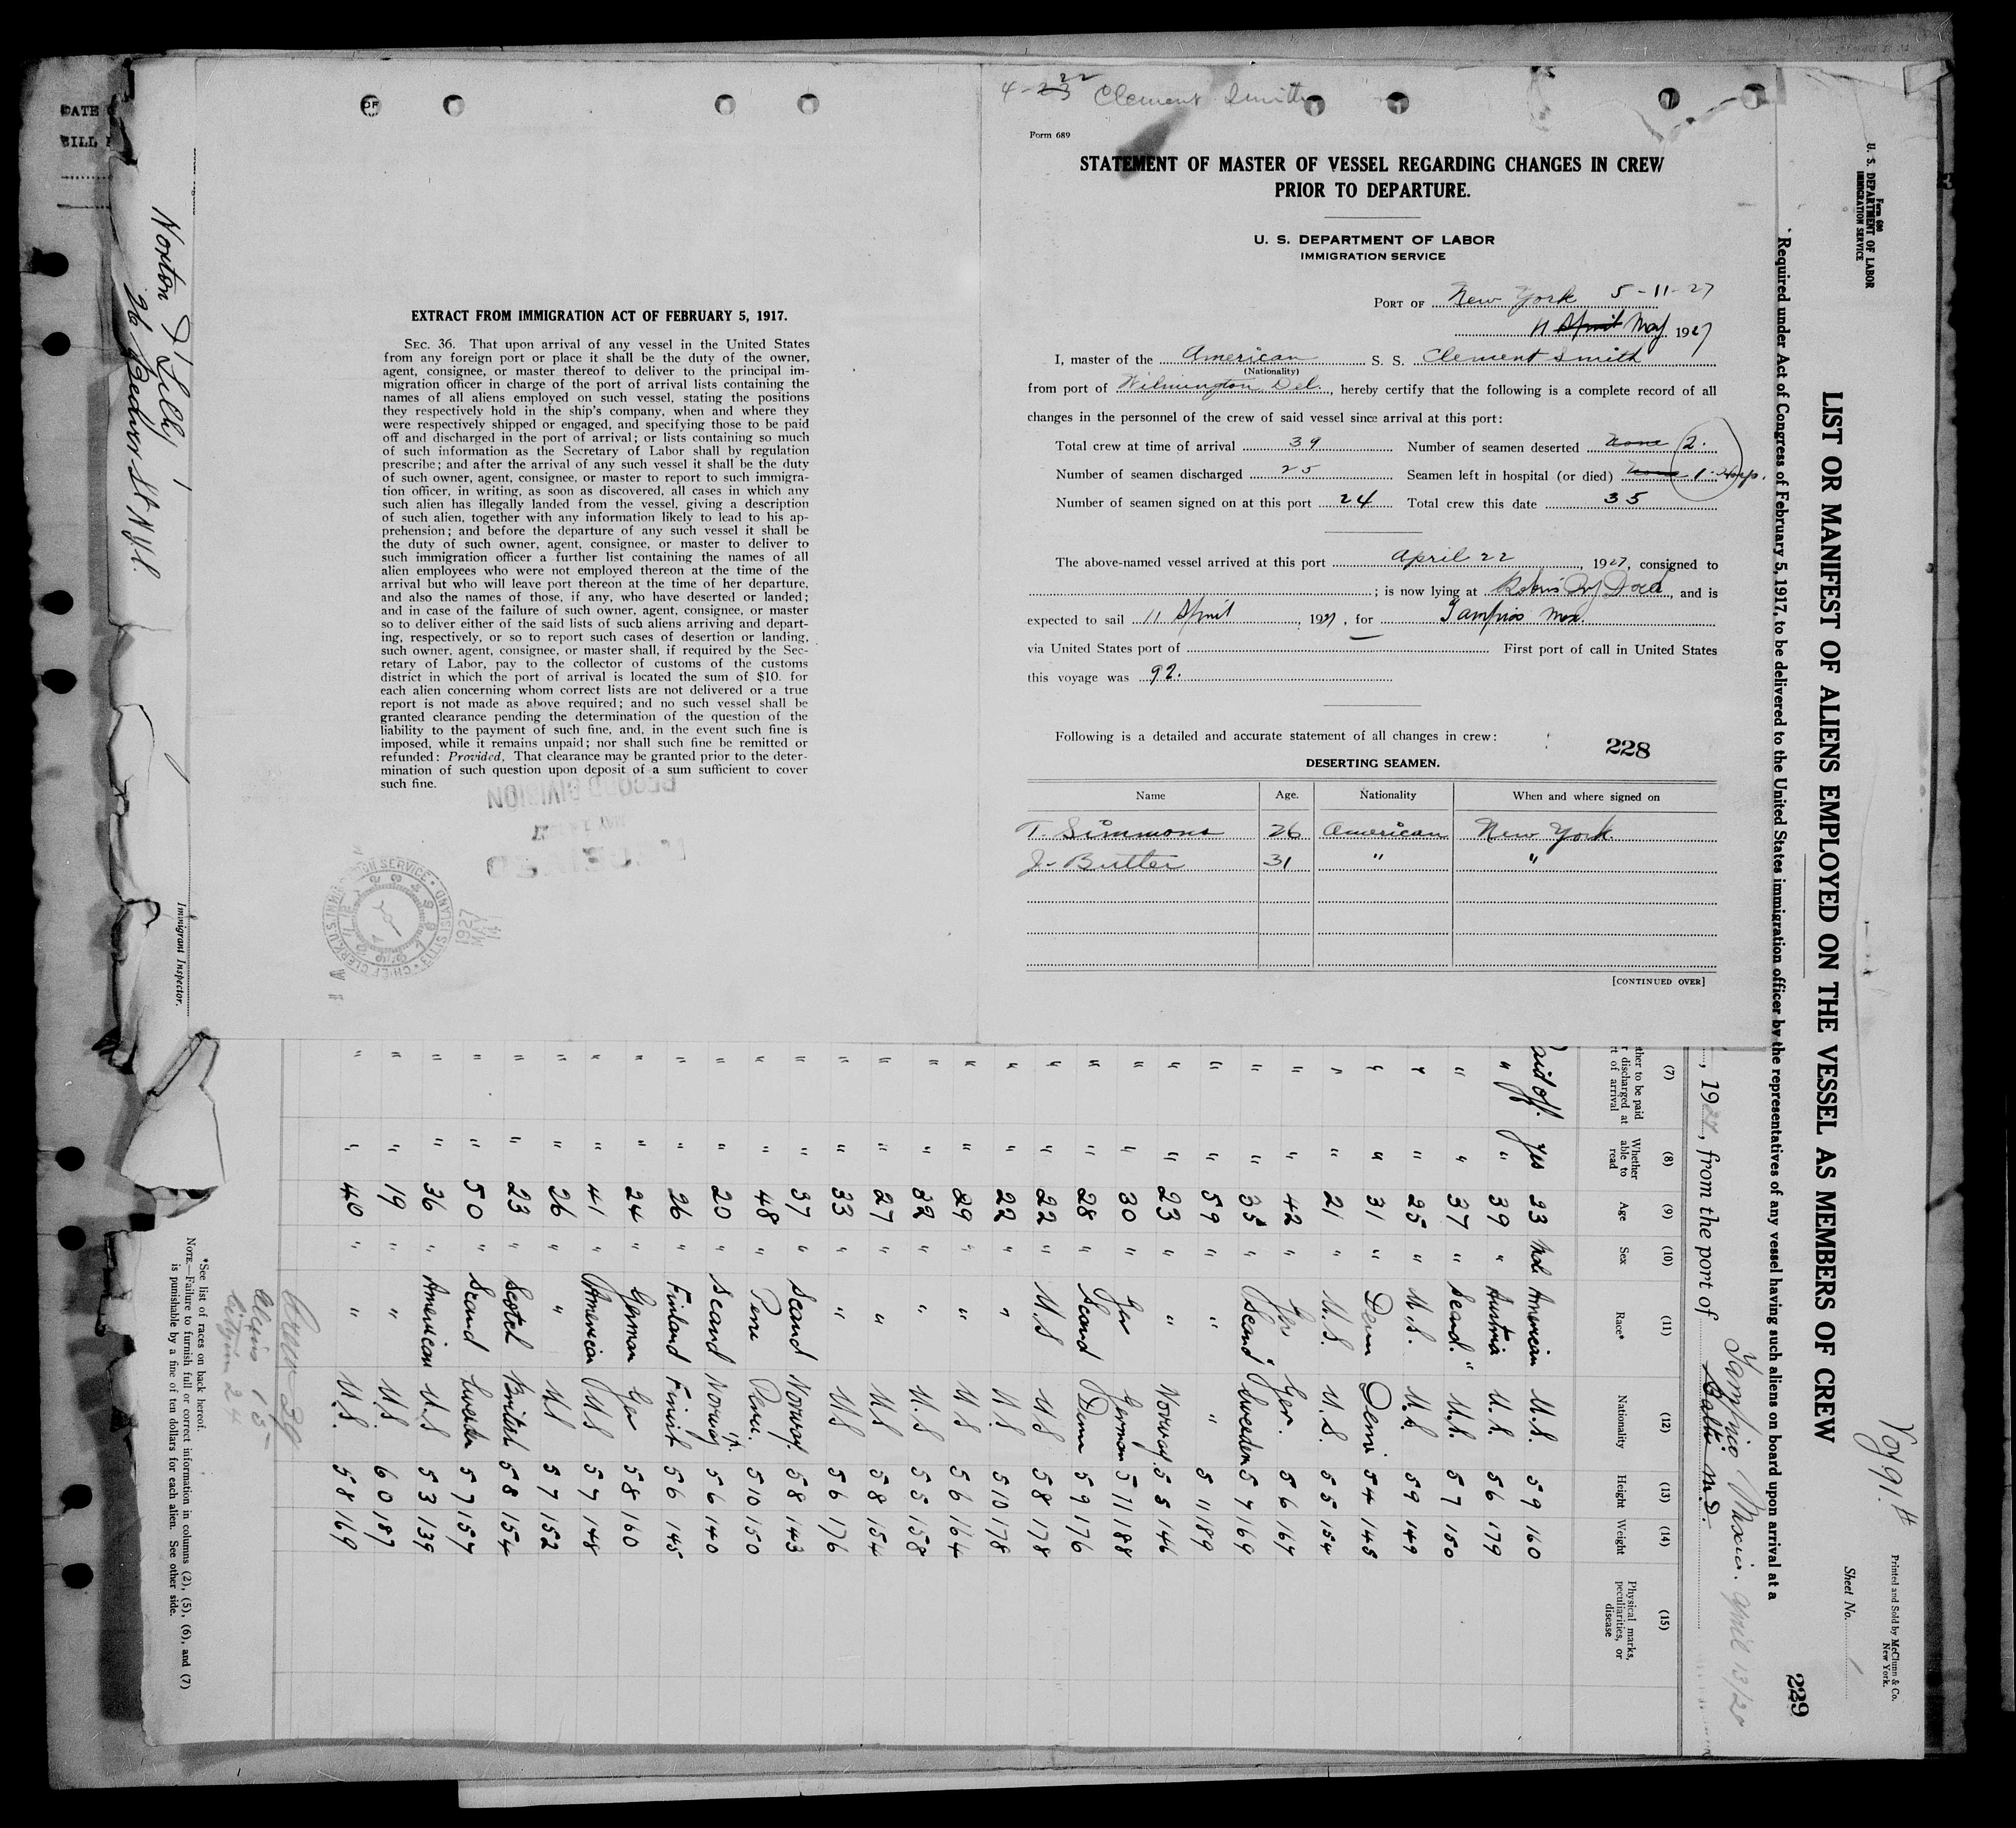 4-23 22 Clement Smith
Form 689
STATEMENT OF MASTER OF VESSEL REGARDING CHANGES IN CREW
PRIOR TO DEPARTURE.
U. S. DEPARTMENT OF LABOR
IMMIGRATION SERVICE
PORT OF New York 5-11-27
11 April May 1927
I, master of the American S. S. Clement Smith
(Nationality)
from port of Wilmington Del., hereby certify that the following is a complete record of all
changes in the personnel of the crew of said vessel since arrival at this port:
Total crew at time of arrival 39 Number of seamen deserted None 2.
Number of seamen discharged 25 Seamen left in hospital (or died) None 1 Hosp.
Number of seamen signed on at this port 24 Total crew this date 35
The above-named vessel arrived at this port April 22, 1927, consigned to
; is now lying at Robins Dry Dock, and is
expected to sail 11 April, 1927, for Tampico Mex.
via United States port of First port of call in United States
this voyage was 92.
Following is a detailed and accurate statement of all changes in crew:
228
DESERTING SEAMEN.
Name Age. Nationality When and where signed on
T. Simmons 26 American New York
J. Butler 31 " "
[CONTINUED OVER]
EXTRACT FROM IMMIGRATION ACT OF FEBRUARY 5, 1917.
SEC. 36. That upon arrival of any vessel in the United States
from any foreign port or place it shall be the duty of the owner,
agent, consignee, or master thereof to deliver to the principal im-
migration officer in charge of the port of arrival lists containing the
names of all aliens employed on such vessel, stating the positions
they respectively hold in the ship's company, when and where they
were respectively shipped or engaged, and specifying those to be paid
off and discharged in the port of arrival; or lists containing so much
of such information as the Secretary of Labor shall by regulation
prescribe; and after the arrival of any such vessel it shall be the duty
of such owner, agent, consignee, or master to report to such immigra-
tion officer, in writing, as soon as discovered, all cases in which any
such alien has illegally landed from the vessel, giving a description
of such alien, together with any information likely to lead to his ap-
prehension; and before the departure of any such vessel it shall be
the duty of such owner, agent, consignee, or master to deliver to
such immigration officer a further list containing the names of all
alien employees who were not employed thereon at the time of the
arrival but who will leave port thereon at the time of her departure,
and also the names of those, if any, who have deserted or landed;
and in case of the failure of such owner, agent, consignee, or master
so to deliver either of the said lists of such aliens arriving and depart-
ing, respectively, or so to report such cases of desertion or landing,
such owner, agent, consignee, or master shall, if required by the Sec-
retary of Labor, pay to the collector of customs of the customs
district in which the port of arrival is located the sum of $10. for
each alien concerning whom correct lists are not delivered or a true
report is not made as above required; and no such vessel shall be
granted clearance pending the determination of the question of the
liability to the payment of such fine, and, in the event such fine is
imposed, while it remains unpaid; nor shall such fine be remitted or
refunded: Provided, That clearance may be granted prior to the deter-
mination of such question upon deposit of a sum sufficient to cover
such fine.
RECORD DIVISION
MAY 14 1927
RECEIVED
CHIEF CLERK, U.S. IMMIGRATION SERVICE · ELLIS ISLAND
1927 MAY 14
Form 680
U. S. DEPARTMENT OF LABOR
IMMIGRATION SERVICE
Voy 91.
Printed and Sold by McClunn & Co.
New York.
Sheet No. 1
LIST OR MANIFEST OF ALIENS EMPLOYED ON THE VESSEL AS MEMBERS OF CREW
229
Required under Act of Congress of February 5, 1917, to be delivered to the United States immigration officer by the representatives of any vessel having such aliens on board upon arrival at a
, 1927, from the port of Balti Md. Tampico Mexico. April 13/20
(7) (8) (9) (10) (11) (12) (13) (14) (15)
Whether able to read Age Sex Race* Nationality Height Weight Physical marks, peculiarities, or disease
Paid off. yes 23 Male American U.S. 5 9 160
" " 39 " Austria U.S. 5 6 179
" " 37 " Scand. U.S. 5 7 150
" " 25 " U.S. U.S. 5 9 149
" " 31 " Denm Denm 5 4 145
" " 21 " U.S. U.S. 5 5 154
" " 42 " Ger Ger. 5 6 167
" " 35 " Scand Sweeden 5 7 169
" " 59 " " " 5 11 189
" " 23 " " Norway 5 5 146
" " 30 " Ger German 5 11 188
" " 28 " Scand Denm 5 9 176
" " 22 " U.S U.S 5 8 178
" " 22 " " U.S. 5 10 178
" " 29 " " U.S 5 6 164
" " 32 " " U.S 5 5 158
" " 27 " " U.S 5 8 154
" " 33 " " U.S 5 6 176
" " 37 " Scand Norway. 5 8 143
" " 48 " Peru Peru. 5 10 150
" " 20 " Scand Norway 5 6 140
" " 26 " Finland Finish 5 6 145
" " 24 " German Ger 5 8 160
" " 41 " American U.S 5 7 148
" " 26 " " U.S 5 7 152
" " 23 " Scotch British 5 8 154
" " 50 " Scand Sweeden 5 7 157
" " 36 " American U.S 5 3 139
" " 19 " " U.S. 6 0 187
" " 40 " " U.S. 5 8 169
Crew 39
Aliens 15
Citizens 24
*See list of races on back hereof.
NOTE.—Failure to furnish full or correct information in columns (2), (5), (6), and (7)
is punishable by a fine of ten dollars for each alien. See other side.
Immigrant Inspector.
Norton & Lilly
26 Beaver St N.Y.